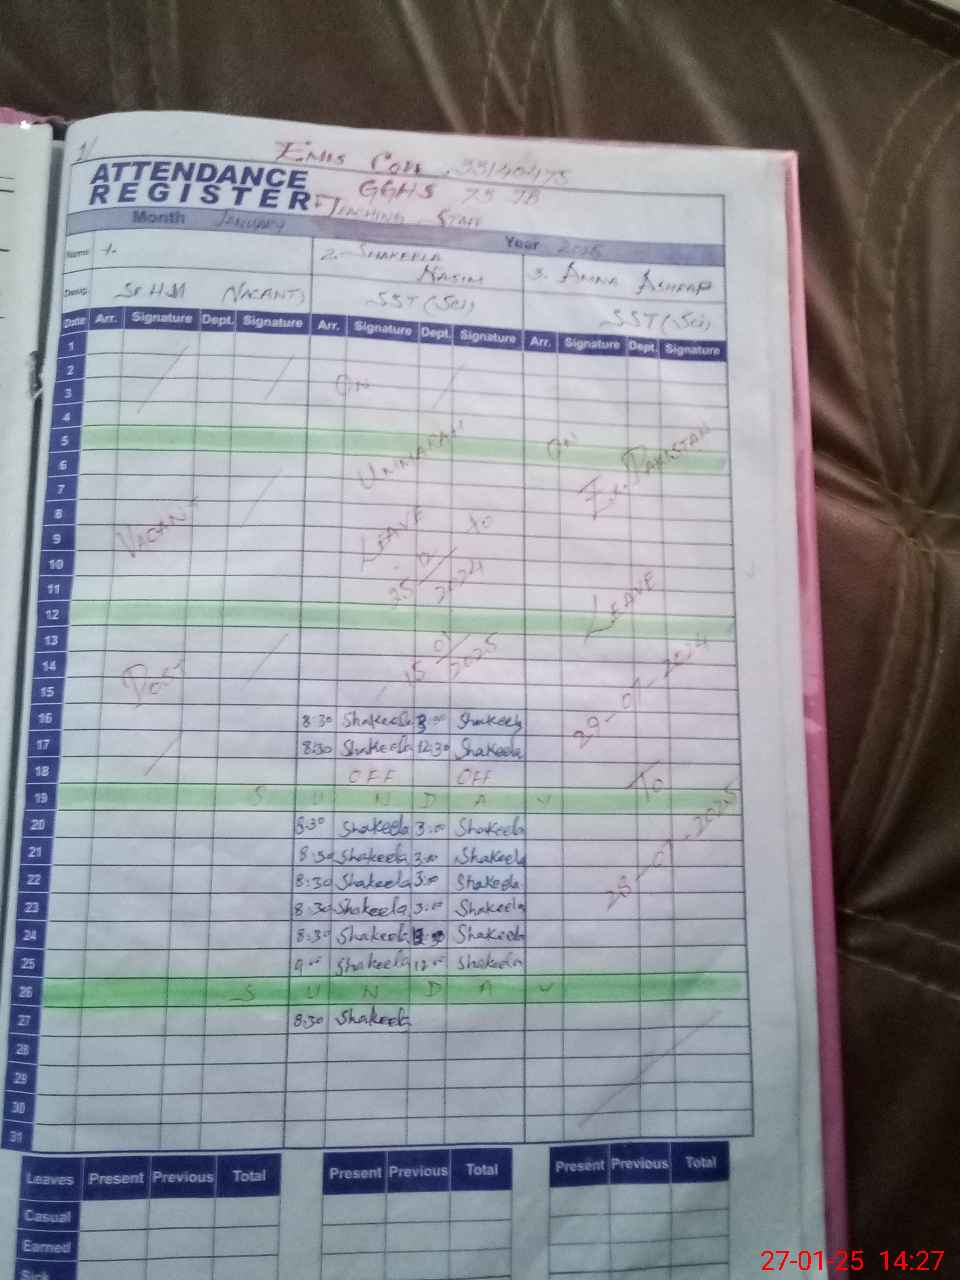 2/
EMIS CODE . 33140475
ATTENDANCE
REGISTER
GGHS 75 JB
TEACHING STAFF
Month JANUARY Year 2025
Name 1. 2. SHAKEELA NASIM 3. AMNA ASHRAF
Desig: Sr HM (VACANT) SST (Sci) SST (Sci)
Date Arr. Signature Dept. Signature Arr. Signature Dept. Signature Arr. Signature Dept. Signature
1
2
3 ON
4
5 ON EX. PAKISTAN
6 UMMARAH
7
8
9 VACANT LEAVE to
10 25 12/2024
11 LEAVE
12
13
14 POST 15 01/2025
15 29-01-2024
16 8:30 Shakeela 3:00 Shakeela
17 8:30 Shakeela 12:30 Shakeela
18 OFF OFF TO
19 S U N D A Y
20 8:30 Shakeela 3:00 Shakeela
21 8:30 Shakeela 3:00 Shakeela
22 8:30 Shakeela 3:00 Shakeela 28-01-2025
23 8:30 Shakeela 3:00 Shakeela
24 8:30 Shakeela Shakeela
25 9:00 Shakeela 12:00 Shakeela
26 S U N D A Y
27 8:30 Shakeela
28
29
30
31
Leaves Present Previous Total Present Previous Total Present Previous Total
Casual
Earned
Sick
27-01-25 14:27